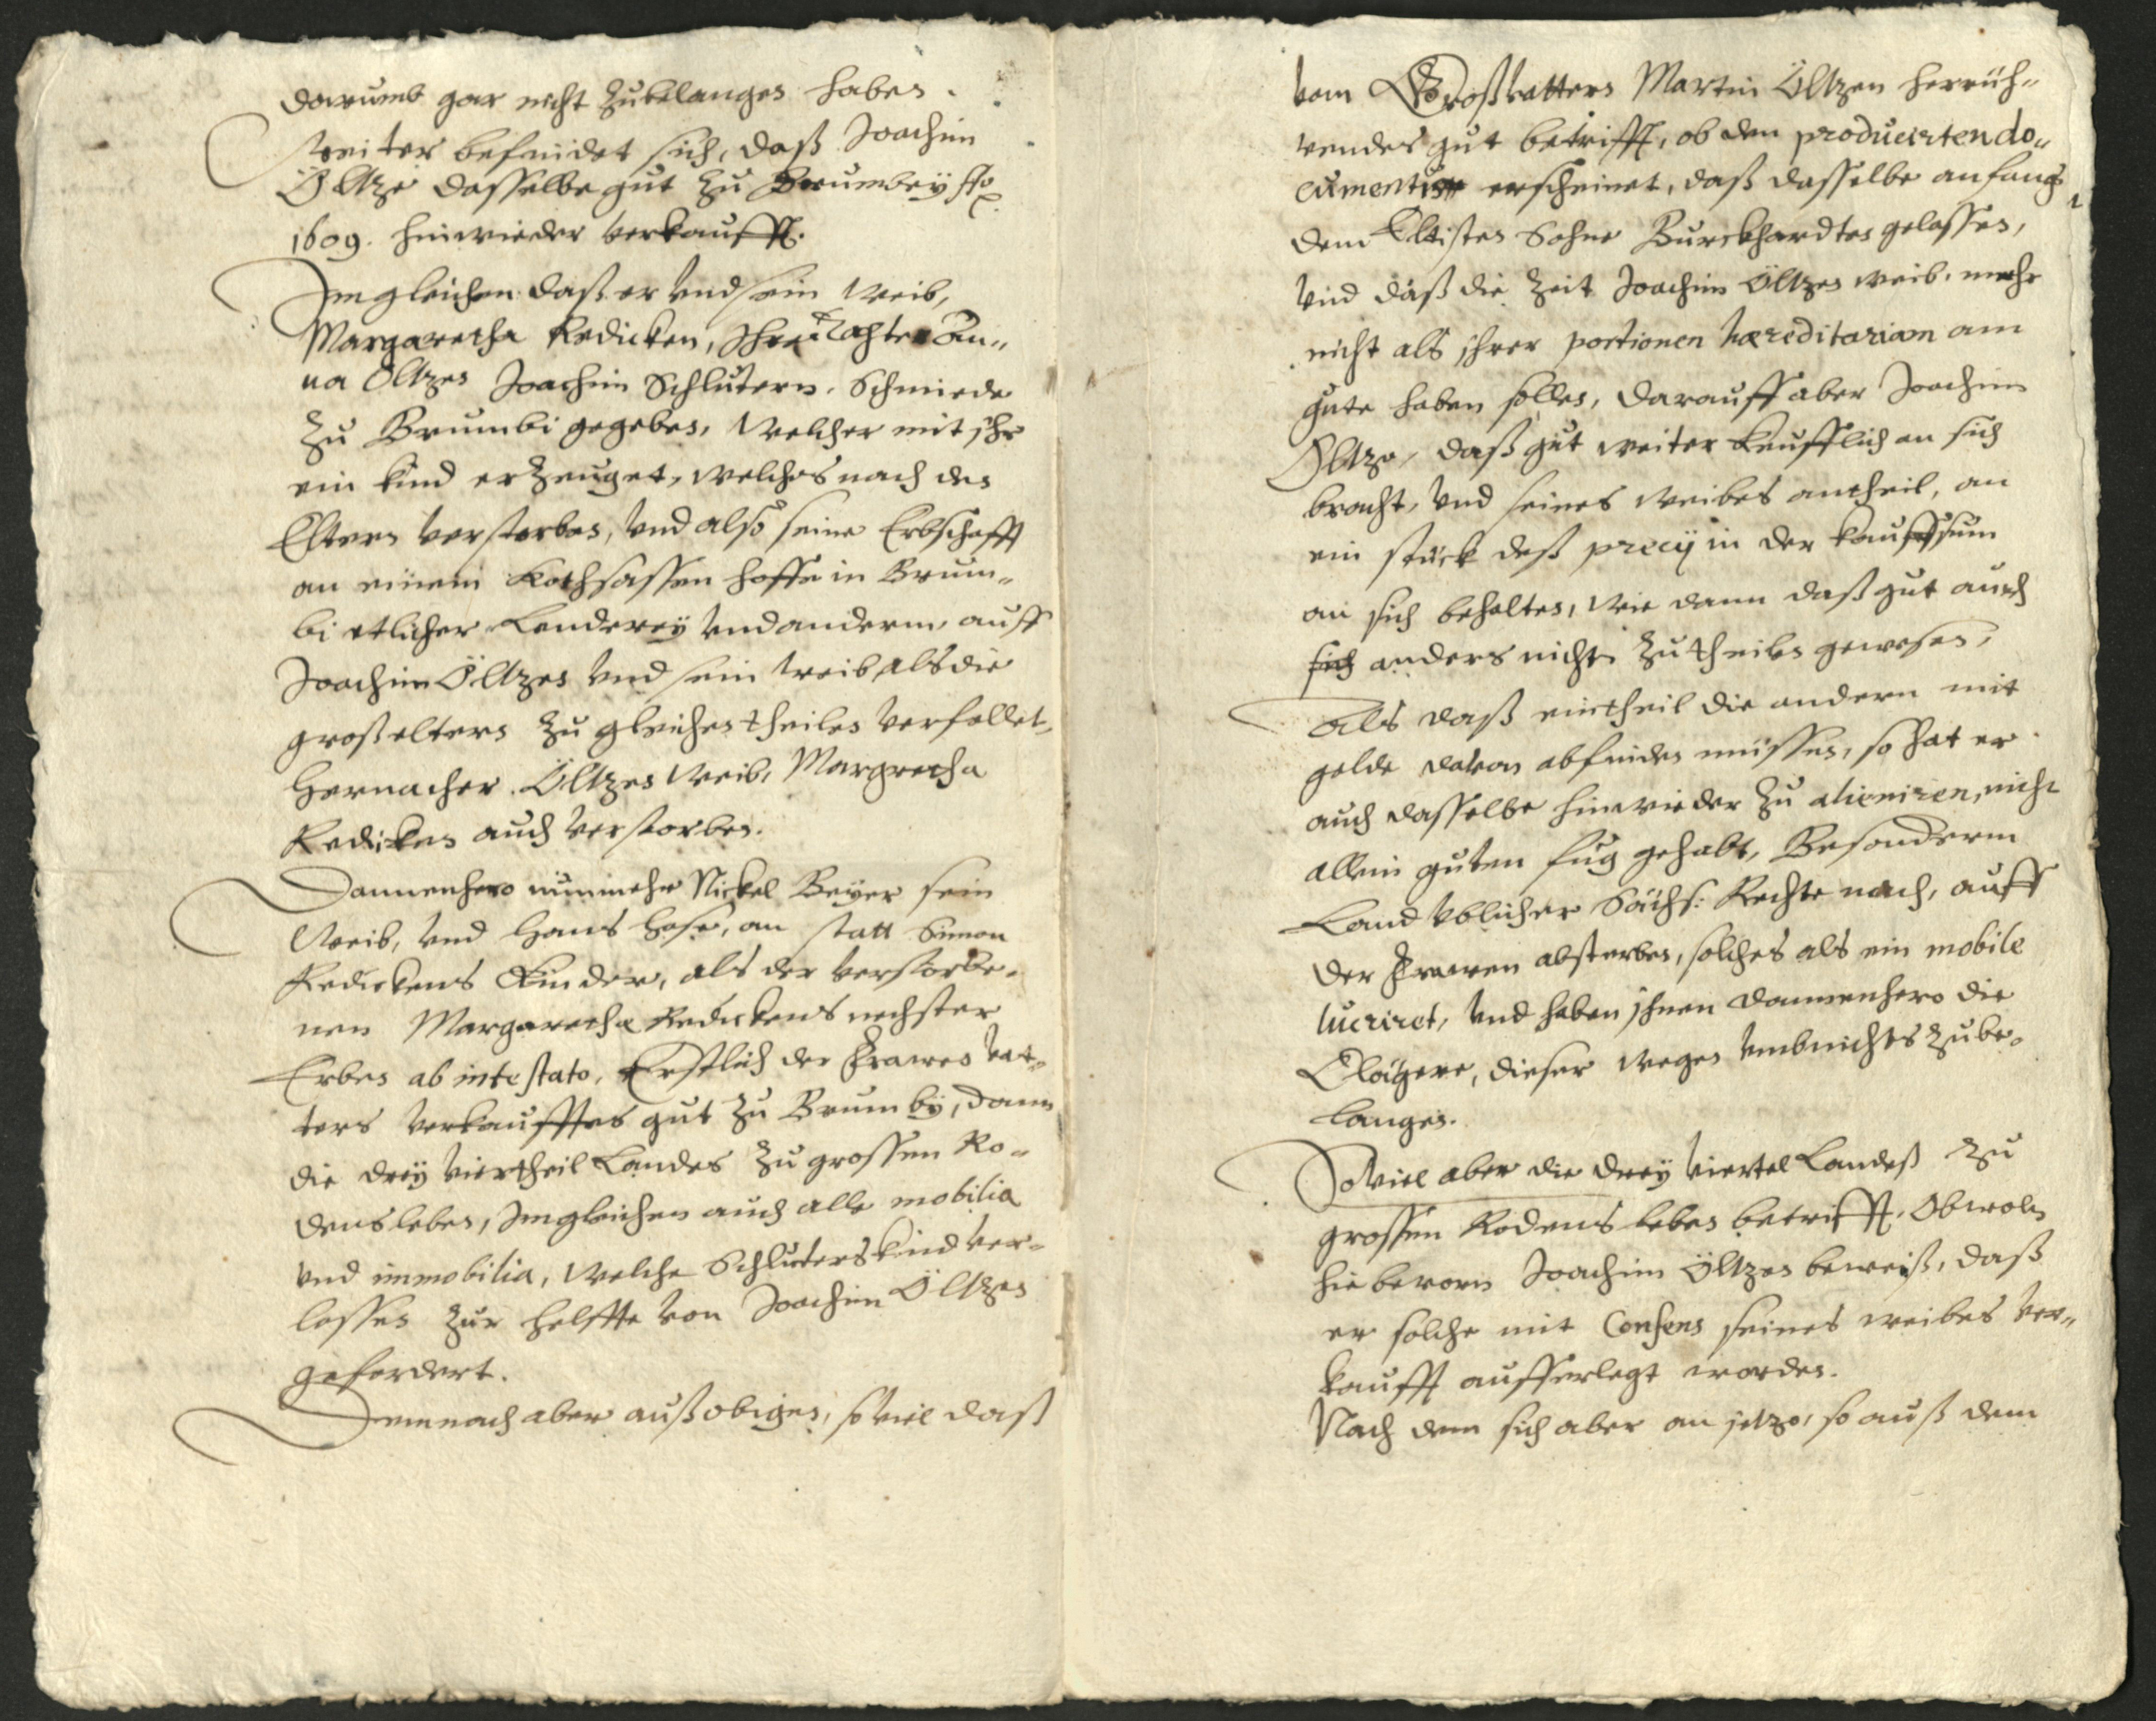 darumb gar nicht zubelangen haben.
Weiter befindet sich, daß Joachim
Öltze dasselbe gut zu Brumbey Ao
1609. hinwieder verkaufft.
Imgleichen daß er vnd sein Weib,
Margaretha Redicken, Ihre Tochter An„
na Öltzen Joachim Schlütern, Schmiede
zu Brumbi gegeben, Welcher mit ihr
ein kind erzeuget, welches nach den
Eltern verstorben, vnd also seine Erbschafft
an einem Kothsassen hoffe in Brum„
bi etlicher Landerey vnd anderm, auff
Joachim Öltzen vnd sein weib, als die
großeltern zu gleichen theilen verfellet,
Hernacher Öltzen Weib, Margretha
Redicken auch verstorben.
Dannenhero nunmehr Nickel Beyer sein
Weib, vnd Hans Hose, an statt Simon
Redickens Kinder, als der verstorbe„
nen Margaretha Redickens nechster
Erben ab intestato, Erstlich der Frawen vat„
ters verkaufftes gut zu Brumby, dann
die drey viertheil Landes zu grossen Ro„
densleben, Imgleichen auch alle mobilia
vnd immobilia, Welche Schluters kind ver„
lassen zur helffte von Joachim Öltzen
gefordert.
Demnach aber auß obigen, so viel daß
vom Großvattern Martin Öltzen herrüh„
rendes gut betrifft, ob den producirten do„
cumentis erscheinet, daß dasselbe anfangs
dem Eltisten Sohne Burckhardten gelassen,
vnd daß die Zeit Joachim Öltzen weib, mehr
nicht als ihrer portionen hæreditariam am
gute haben sollen, darauff aber Joachim
Öltze, daß gut weiter keufflich an sich
bracht, vnd seines Weibes antheil, an
ein stück deß precij in der kauffsum
an sich behalten, Wie dann daß gut auch
sich anders nicht zu theilen gewesen,
Als daß ein theil die andern mit
gelde davon abfinden müssen, so hat er
auch dasselbe hinwieder zu alieniren, nicht
allein guten fug gehabt, Besonderm
Land vblicher Sächs: Rechte nach, auff
der Frawen absterben, solches als ein mobile
lucriret, vnd haben ihnen dannenhero die
Clägere, dieser wegen vmb nichts zu be„
langen.
So viel aber die drey viertel Landeß zu
grossen Rodensleben betrifft, Obwoln
hiebevorn Joachim Öltzen beweiß, daß
er solche mit Consens seines weibes ver„
kaufft aufferlegt worden.
Nach dem sich aber an jetzo, so auß dem